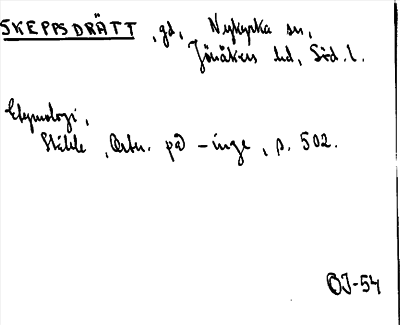 SKEPPSDRÄTT, gd, Nykyrka sn,
Jönåkers hd, Söd. l.
Etymologi,
Ståhle, Ortn. på -inge, s. 502.
OJ-54